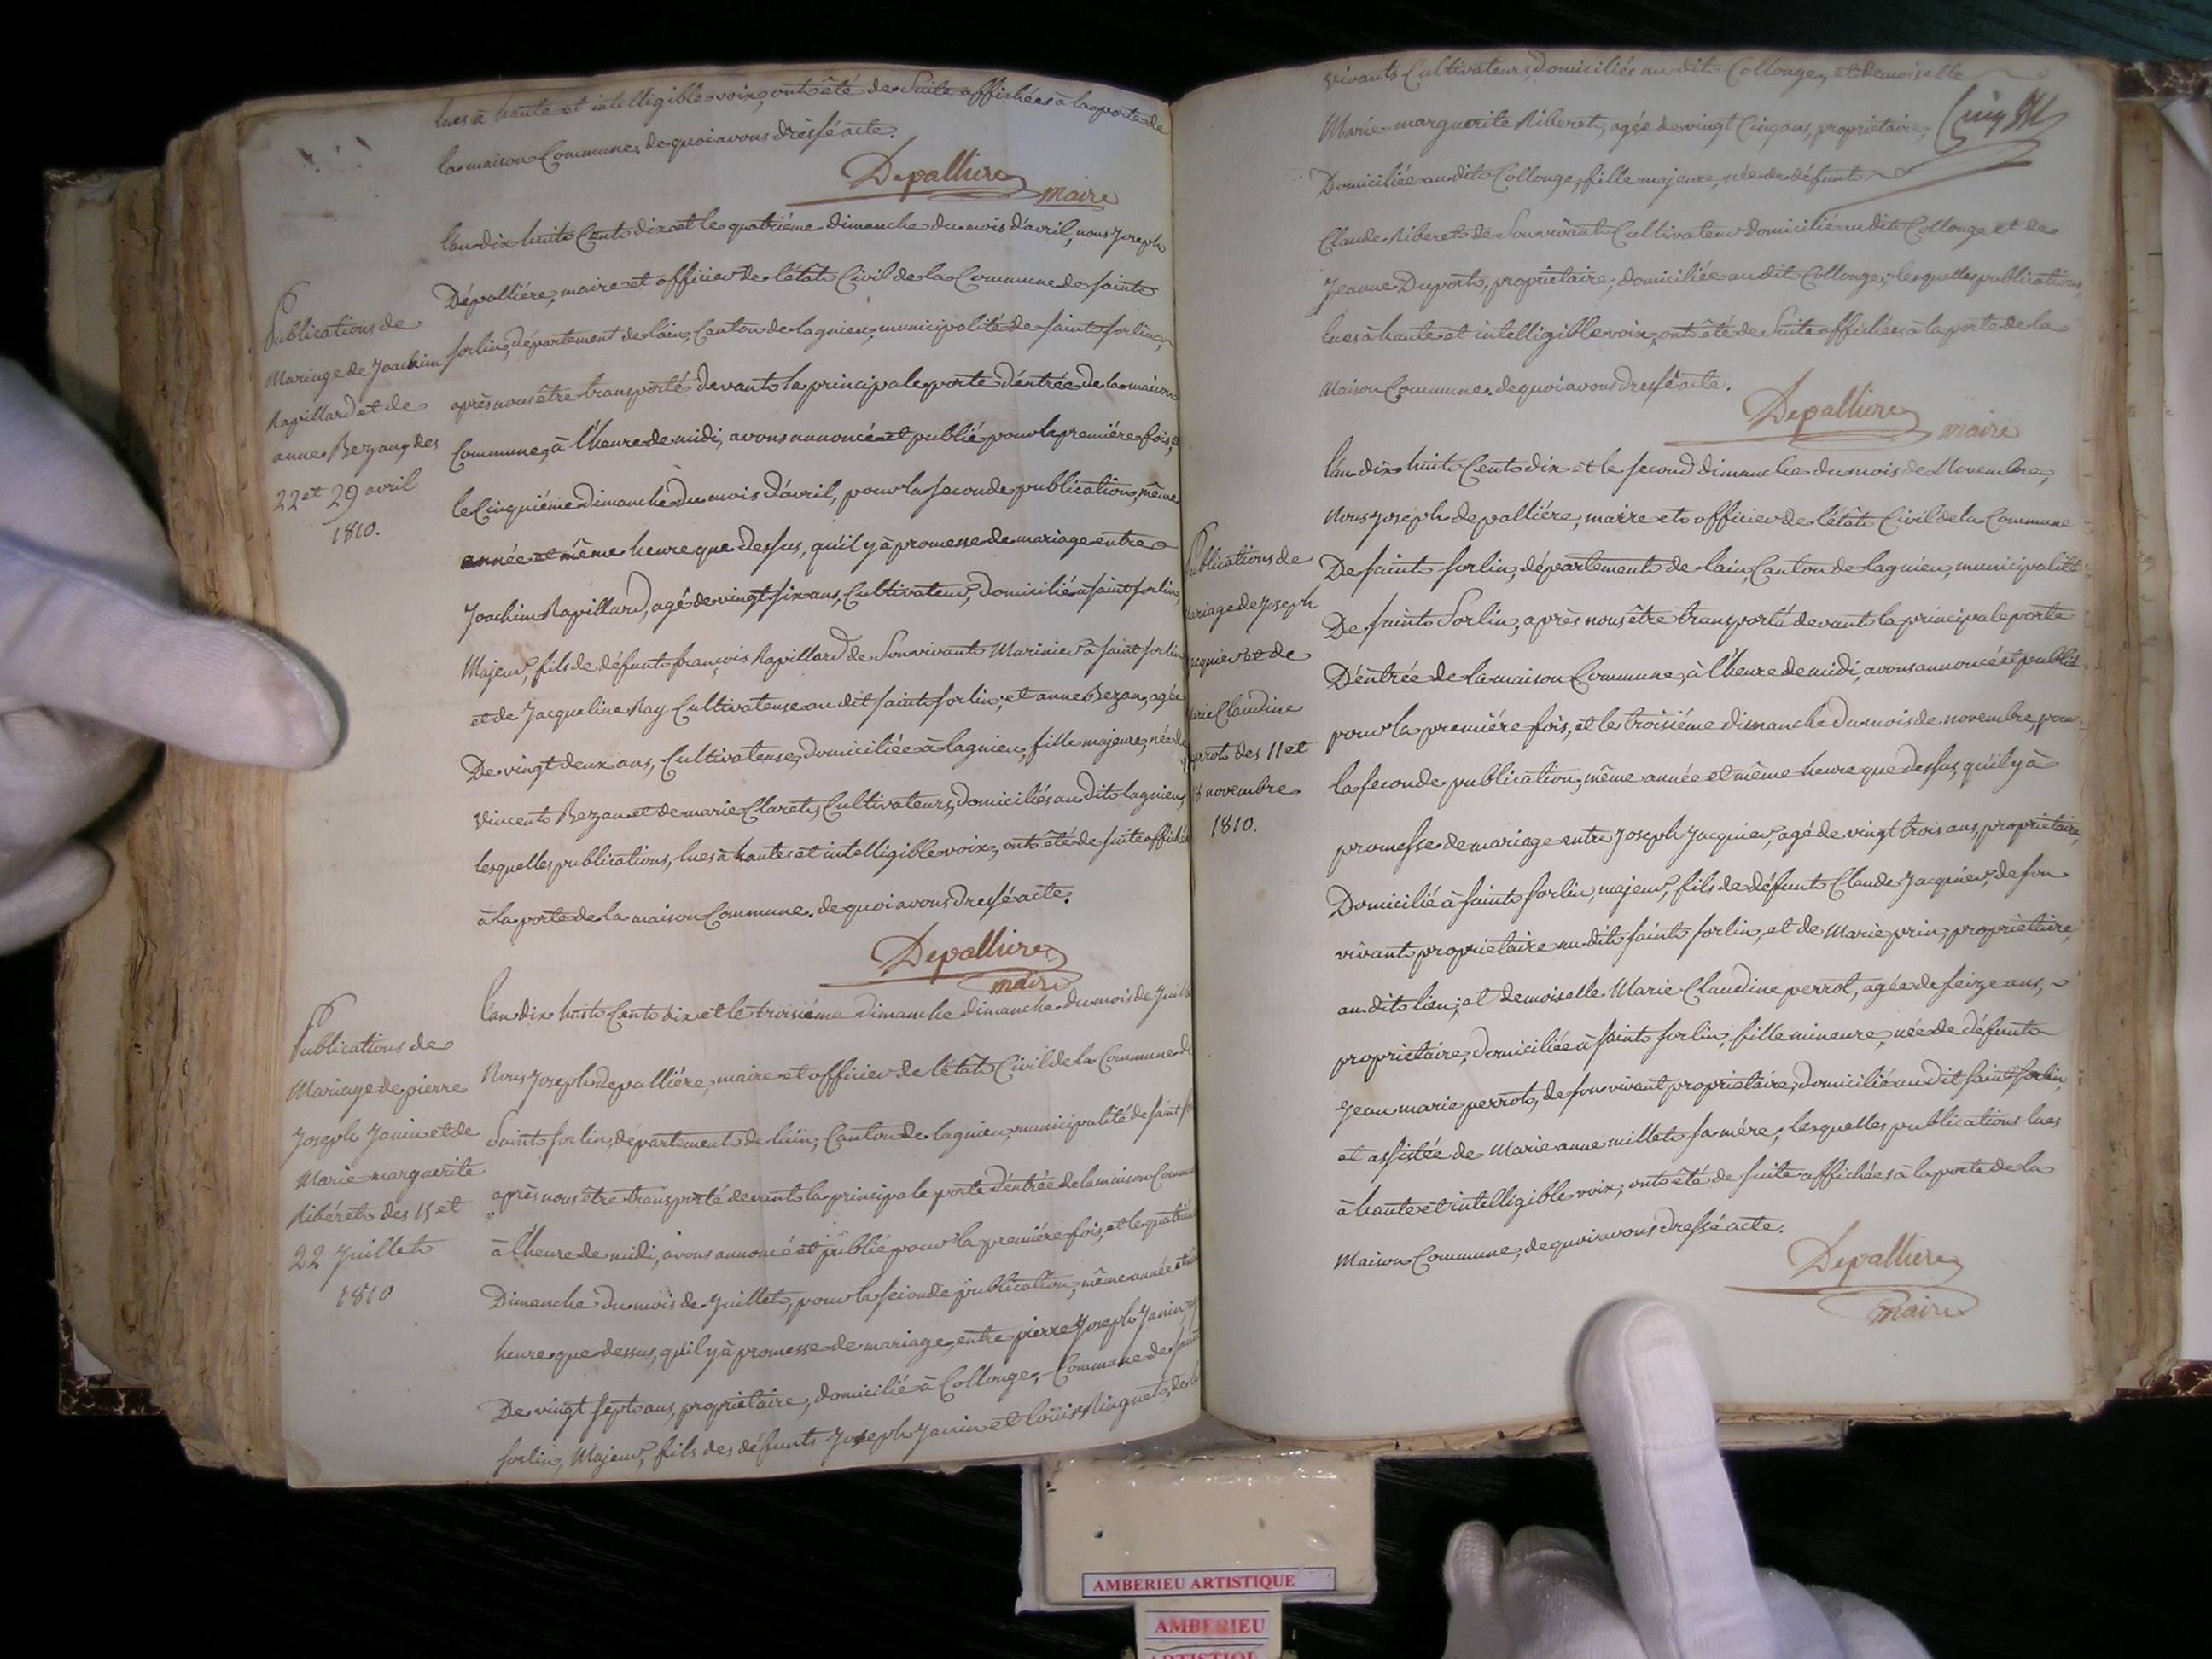 lues à haute et intelligible voix, ont été de Suite affichées à la porte de
la maison Commune, de quoi avons dressé acte.
Depalliere
maire
Publications de
Mariage de Joachim
Ravillard et de
anne Bezan, des
22 et 29 avril
1810.
l'an dix huit Cent dix et le quatriéme dimanche du mois d'avril, nous Joseph
Dépalliére, maire et officier de l'état Civil de la Commune de saint
sorlin, département de l'ain, Canton de lagnieu, municipalité de saint sorlin,
après nous être transporté devant la principale porte d'éntrée de la maison
Commune, à l'heure de midi, avons annoncé et publié pour la premiére fois, et
le Cinquiéme dimanche du mois d'avril, pour la seconde publication, même
année et même heure que dessus, qu'il y à promesse de mariage entre
Joachim Ravillard, agé de vingt six ans, Cultivateur, domicilié à saint sorlin,
Majeur, fils de défunt françois Ravillard de Son vivant Marinier à saint sorlin
et de Jacqueline Ray Cultivateuse au dit saint sorlin; et anne Bezan, agée
De vingt deux ans, Cultivateuse, domiciliée à lagnieu, fille majeure, née de
vincent Bezan et de marie Claret, Cultivateurs, domiciliés au dit lagnieu,
lesquelles publications, lues à haute et intelligible voix, ont été de suite affichées
à la porte de la maison Commune. de quoi avons dressé acte.
Depalliere
maire
Publications de
Mariage de pierre
Joseph Janin et de
Marie marguerite
Ribéret des 15 et
22 Juillet
1810
l'an dix huit Cent dix et le troisiéme dimanche dimanche du mois de Juillet
Nous Joseph depalliére, maire et officier de l'état Civil de la Commune de
Saint sorlin, département de l'ain, Canton de lagnieu, municipalité de saint
après nous être transporté devant la principale porte d'éntrée de la maison
à l'heure de midi, avons annoncé et publié pour la premiére fois, et le quatriéme
Dimanche du mois de Juillet, pour la seconde publication, même année et
heure que dessus, qu'il y à promesse de mariage, entre pierre Joseph Janin,
De vingt sept ans, propriétaire, domicilié à Collonge, Commune de saint
sorlin, Majeur, fils des défunts Joseph Janin et Ringuet, de
vivants Cultivateurs, domiciliés au dit Collonge, et demoiselle
Marie marguerite Riberet, agée de vingt Cinq ans, propriétaire,
Domiciliée au dit Collonge, fille majeure, née de défunt
Claude Riberet de Son vivant Cultivateur domicilié au dit Collonge et de
Jeanne Duport, propriétaire, domiciliée au dit Collonge; lesquelles publications,
lues à haute et intelligible voix, ont été de Suite affichées à la porte de la
Maison Commune. de quoi avons dressé acte.
Depalliere
maire
Publications de
mariage de Joseph
Jacquier et de
marie Claudine
perrot des 11 et
18 novembre
1810.
l'an dix huit Cent dix et le second dimanche du mois de Novembre,
Nous Joseph depalliére, maire et officier de l'état Civil de la Commune
De saint sorlin, département de l'ain, Canton de lagnieu, municipalité
De saint Sorlin, après nous être transporté devant la principale porte
D'éntrée de la maison Commune, à l'heure de midi, avons annoncé et publié
pour la premiére fois, et le troisiéme dimanche du mois de novembre, pour
la seconde publication, même année et même heure que dessus, qu'il y à
promesse de mariage entre Joseph Jacquier, agé de vingt trois ans, propriétaire,
Domicilié à saint sorlin, majeur, fils de défunt Claude Jacquier, de son
vivant propriétaire au dit saint sorlin, et de Marie prin, propriétaire,
au dit lieu; et demoiselle Marie Claudine perrot, agée de seize ans,
propriétaire, domiciliée à saint sorlin, fille mineure, née de défunt
Jean marie perrot, de son vivant propriétaire, domicilié au dit saint sorlin,
et assistée de Marie anne millet sa mére; lesquelles publications lues
à haute et intelligible voix, ont été de suite affichées à la porte de la
Maison Commune, de quoi avons dressé acte.
Depalliere
maire
AMBERIEU ARTISTIQUE
AMBERIEU
ARTISTIQUE